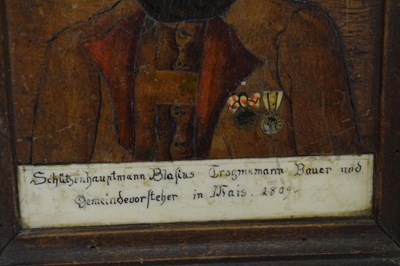 Schützenhauptmann Blasius Trogmann Bauer und
Gemeindevorsteher in Mais. 1809.